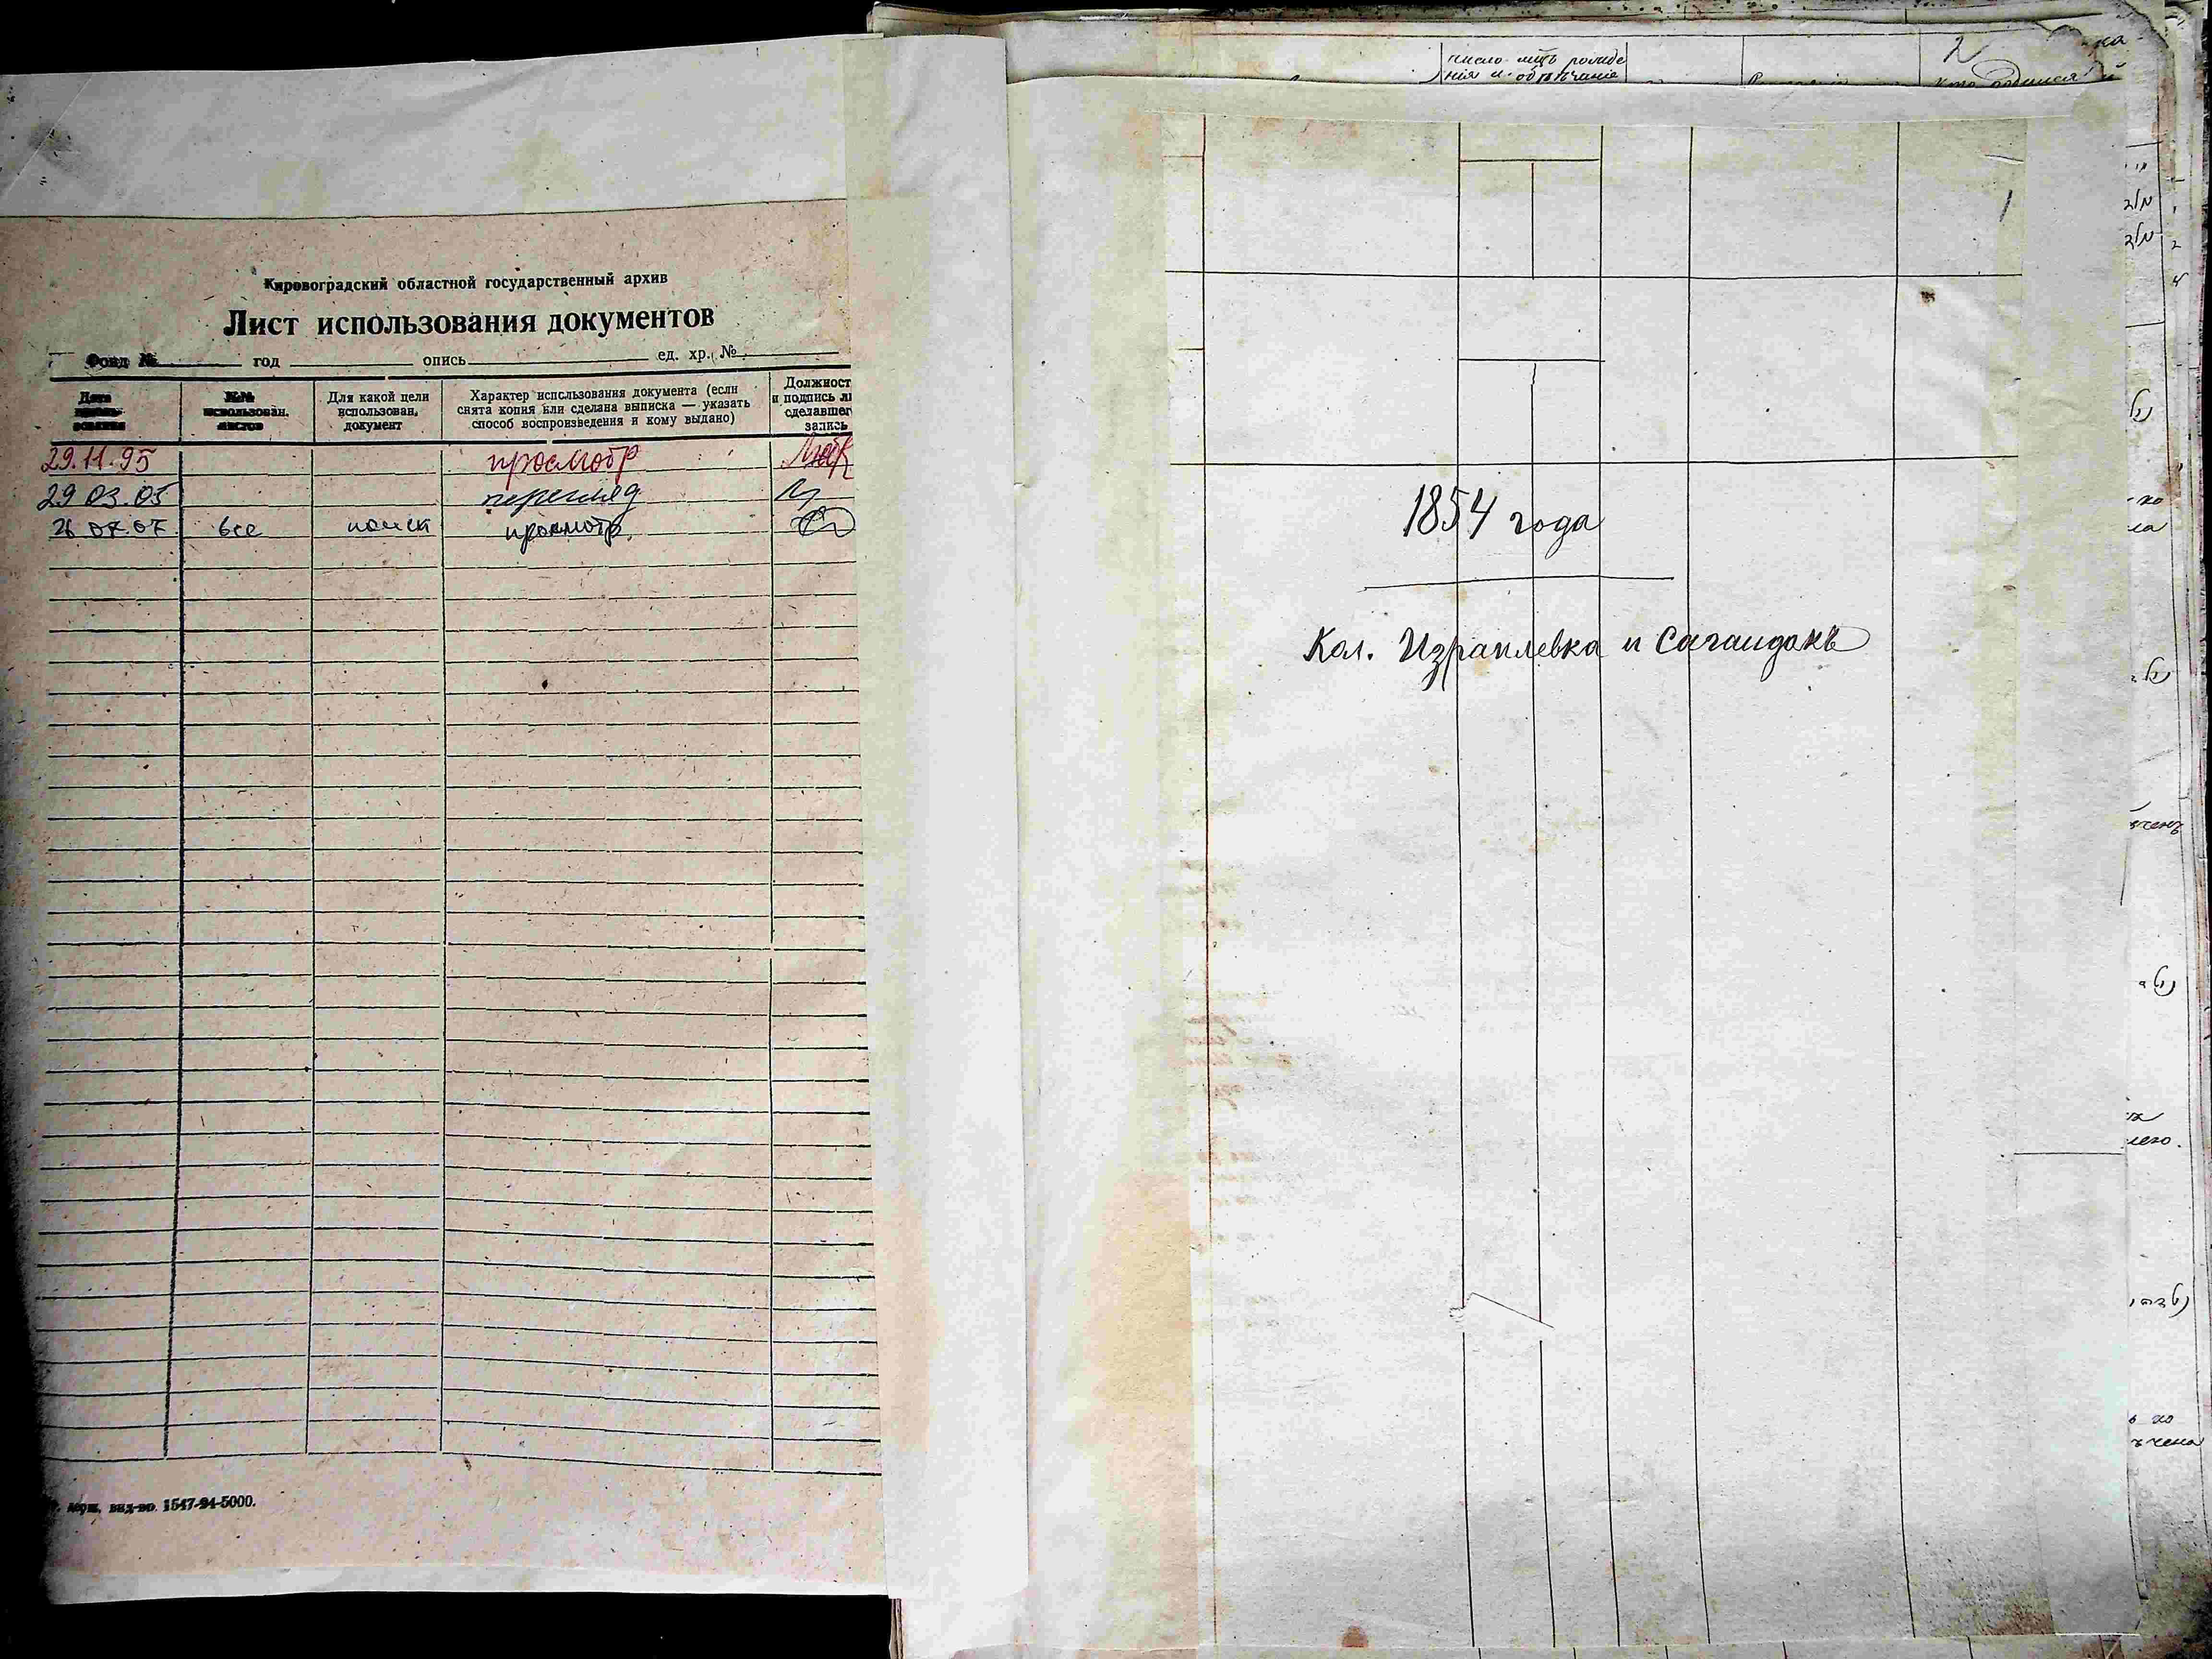 Кировоградский областной государственный архив
Лист использования документов
Фонд № год опись ед. хр. №
Дата использования
№№ использован. листов
Для какой цели использован. документ
Характер использования документа (если
снята копия или сделана выписка — указать
способ воспроизведения и кому выдано)
Должност
и подпись ли
сделавшег
запись
29.11.95 просмотр
29 03.05 перегляд
26 07.07. все поиск просмотр
держ. вид-во. 1547-94-5000.
2
число лѣтъ рожде
нія и обрѣзанія
кто родился
1
1854 года
Кол. Израилевка и Сагайдакъ